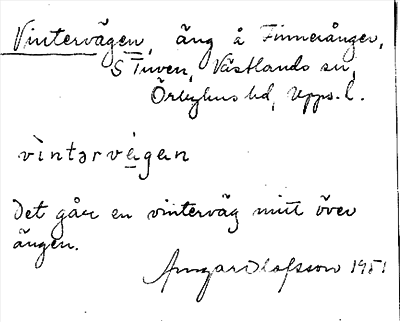 Vintervägen, äng å Finnerånger,
S Tuven, Västlands sn,
Örbyhus hd, Upps. l.
vìntərvä̀gen
Det går en vinterväg mitt över
ängen.
Olofsson 1951